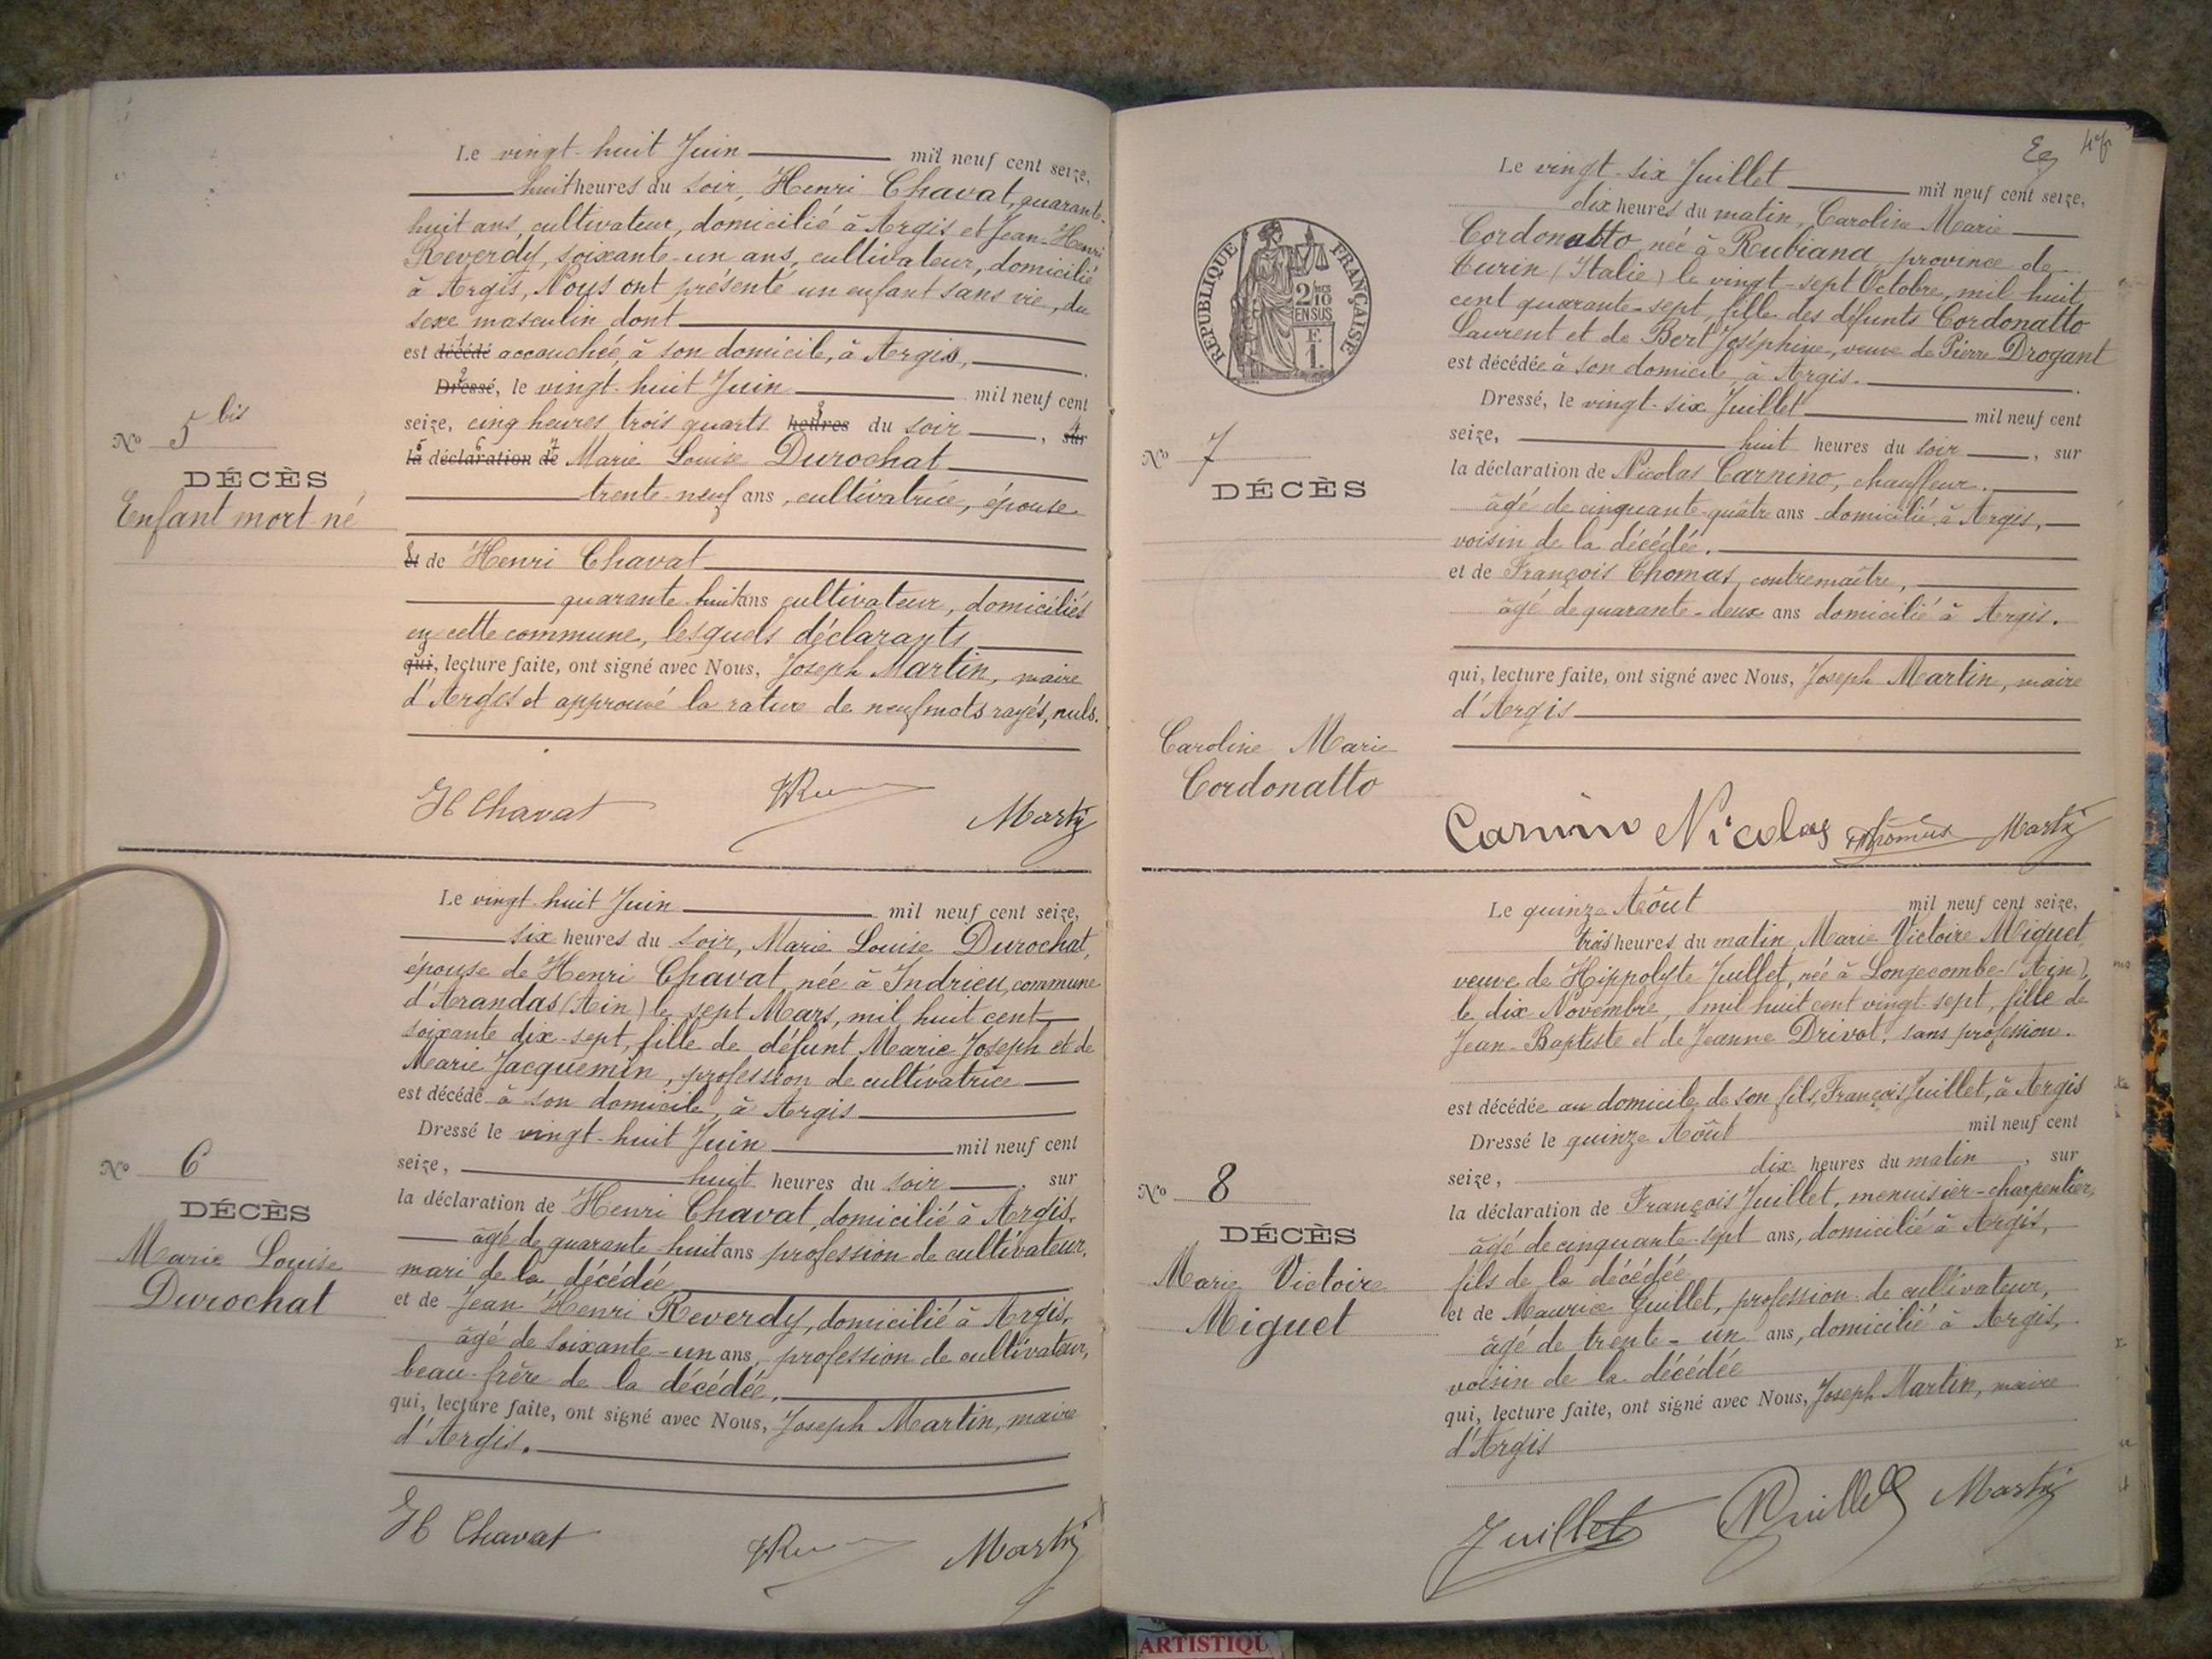 Le vingt-huit Juin mil neuf cent seize,
huit heures du soir, Henri Chavat, quarante-
huit ans, cultivateur, domicilié à Argis et Jean-Henri
Reverdy, soixante-un ans, cultivateur, domicilié
à Argis, Nous ont présenté un enfant sans vie, du
sexe masculin dont
est décédé accouchée, à son domicile, à Argis,
Dressé, le vingt-huit Juin mil neuf cent
seize, cinq heures trois quarts heures du soir, sur
la déclaration de Marie Louise Durochat
trente-neuf ans, cultivatrice, épouse
et de Henri Chavat
quarante-huit ans cultivateur, domiciliés
en cette commune, lesquels déclarants
qui, lecture faite, ont signé avec Nous, Joseph Martin, maire
d'Argis et approuvé la rature de neuf mots rayés, nuls.
H Chavat
Martin
No 5 bis
DÉCÈS
Enfant mort-né
Le vingt-huit Juin mil neuf cent seize,
six heures du soir, Marie Louise Durochat,
épouse de Henri Chavat, née à Indrieu, commune
d'Arandas (Ain) le sept Mars, mil huit cent
soixante dix-sept, fille de défunt Marie Joseph et de
Marie Jacquemin, profession de cultivatrice
est décédé à son domicile, à Argis
Dressé le vingt-huit Juin mil neuf cent
seize, huit heures du soir, sur
la déclaration de Henri Chavat, domicilié à Argis,
âgé de quarante huit ans profession de cultivateur,
mari de la décédée
et de Jean Henri Reverdy, domicilié à Argis,
âgé de soixante-un ans, profession de cultivateur,
beau-frère de la décédée,
qui, lecture faite, ont signé avec Nous, Joseph Martin, maire
d'Argis.
H Chavat
Martin
No 6
DÉCÈS
Marie Louise
Durochat
47
RÉPUBLIQUE FRANÇAISE
2/10 EN SUS
F. 1.
Le vingt-six Juillet mil neuf cent seize,
dix heures du matin, Caroline Marie
Cordonatto, née à Rubiana, province de
Turin (Italie) le vingt-sept Octobre, mil huit
cent quarante-sept, fille des défunts Cordonatto
Laurent et de Bert Joséphine, veuve de Pierre Drogant
est décédée à son domicile, à Argis.
Dressé, le vingt-six Juillet mil neuf cent
seize, huit heures du soir, sur
la déclaration de Nicolas Carnino, chauffeur.
âgé de cinquante-quatre ans domicilié à Argis,
voisin de la décédée.
et de François Thomas, contremaître,
âgé de quarante-deux ans domicilié à Argis.
qui, lecture faite, ont signé avec Nous, Joseph Martin, maire
d'Argis
Carnino Nicolas Thomas Martin
No 7
DÉCÈS
Caroline Marie
Cordonatto
Le quinze Aôut mil neuf cent seize,
trois heures du matin, Marie Victoire Miguet,
veuve de Hippolyte Juillet, née à Longecombe (Ain),
le dix Novembre, mil huit cent vingt-sept, fille de
Jean-Baptiste et de Jeanne Drivot, sans profession.
est décédée au domicile de son fils, François Juillet, à Argis
Dressé le quinze Aôut mil neuf cent
seize, dix heures du matin, sur
la déclaration de François Juillet, menuisier-charpentier,
âgé de cinquante-sept ans, domicilié à Argis,
fils de la décédée
et de Maurice Guillet, profession de cultivateur,
âgé de trente-un ans, domicilié à Argis,
voisin de la décédée
qui, lecture faite, ont signé avec Nous, Joseph Martin, maire
d'Argis
Juillet Martin
No 8
DÉCÈS
Marie Victoire
Miguet
ARTISTIQU